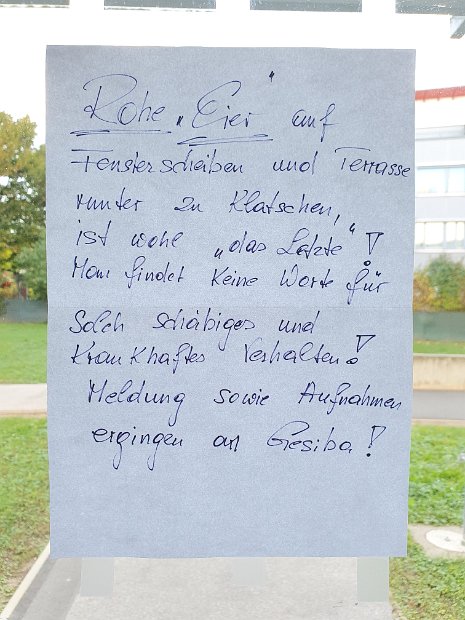 Rohe „Eier" auf
Fensterscheiben und Terrasse
runter zu Klatschen,
ist wohl „das Letzte"!
Man findet keine Worte für
Solch schäbiges und
Krankhaftes Verhalten!
Meldung sowie Aufnahmen
ergingen an Gesiba!